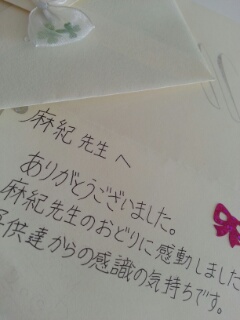 麻紀先生へ
ありがとうございました。
麻紀先生のおどりに感動しました
子供達からの感識の気持ちです。